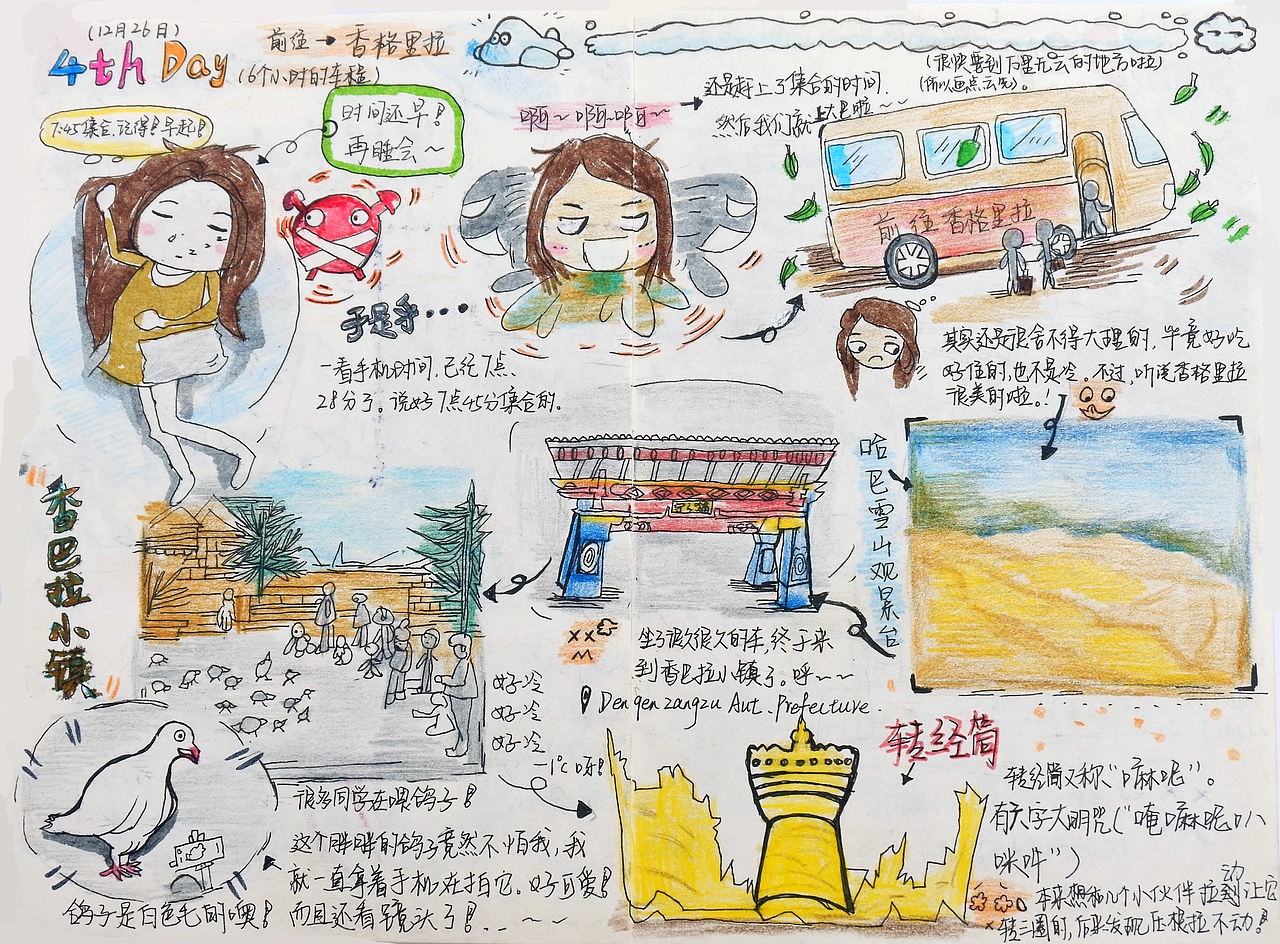 (12月26日)
4th Day
前往→香格里拉
(6个小时的车程)
7:45集合,记得!早起!
时间还早!
再睡会~
啊~啊~啊~
还是赶上了集合的时间.
然后我们就上大巴啦~~
(很快要到万里无云的地方啦)
(所以画点云先)。
前往香格里拉
于是乎...
一看手机时间,已经7点、
28分了。说好7点45分集合的.
其实还是很舍不得大理的,毕竟好吃
好住的,也不是冷。不过,听说香格里拉
很美的啦。!
哈巴雪山观景台
香巴拉小镇
坐了很久很久的车,终于来
到香巴拉小镇了。呼~~
Den qen zangzu Aut. Prefecture.
好冷
好冷
好冷
-1℃呀!
很多同学在喂鸽子!
这个胖胖的鸽子竟然不怕我,我
就一直拿着手机在拍它。好可爱!
而且还看镜头了!..~~
鸽子是白色毛的噢!
转经筒
转经筒又称“嘛呢”。
有六字大明咒(“唵嘛呢叭
咪吽”)
本来想和几个小伙伴拉动让它
转三圈的,后来发现压根拉不动!